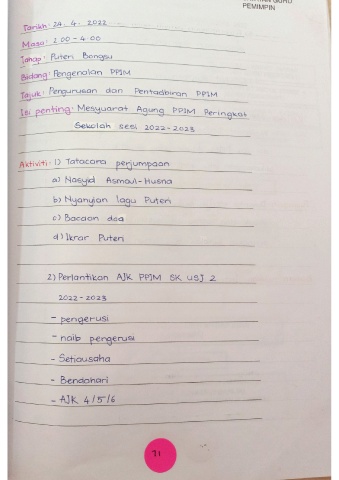 GURU
PEMIMPIN
Tarikh: 24. 4. 2022
Masa: 2.00 - 4.00
Tahap: Puteri Bongsu
Bidang: Pengenalan PPIM
Tajuk: Pengurusan dan Pentadbiran PPIM
Isi penting: Mesyuarat Agung PPIM Peringkat
Sekolah sesi 2022-2023
Aktiviti: 1) Tatacara perjumpaan
a) Nasyid Asmaul-Husna
b) Nyanyian lagu Puteri
c) Bacaan doa
d) Ikrar Puteri
2) Perlantikan AJK PPIM SK USJ 2
2022-2023
- pengerusi
- naib pengerusi
- Setiausaha
- Bendahari
- AJK 4/5/6
71